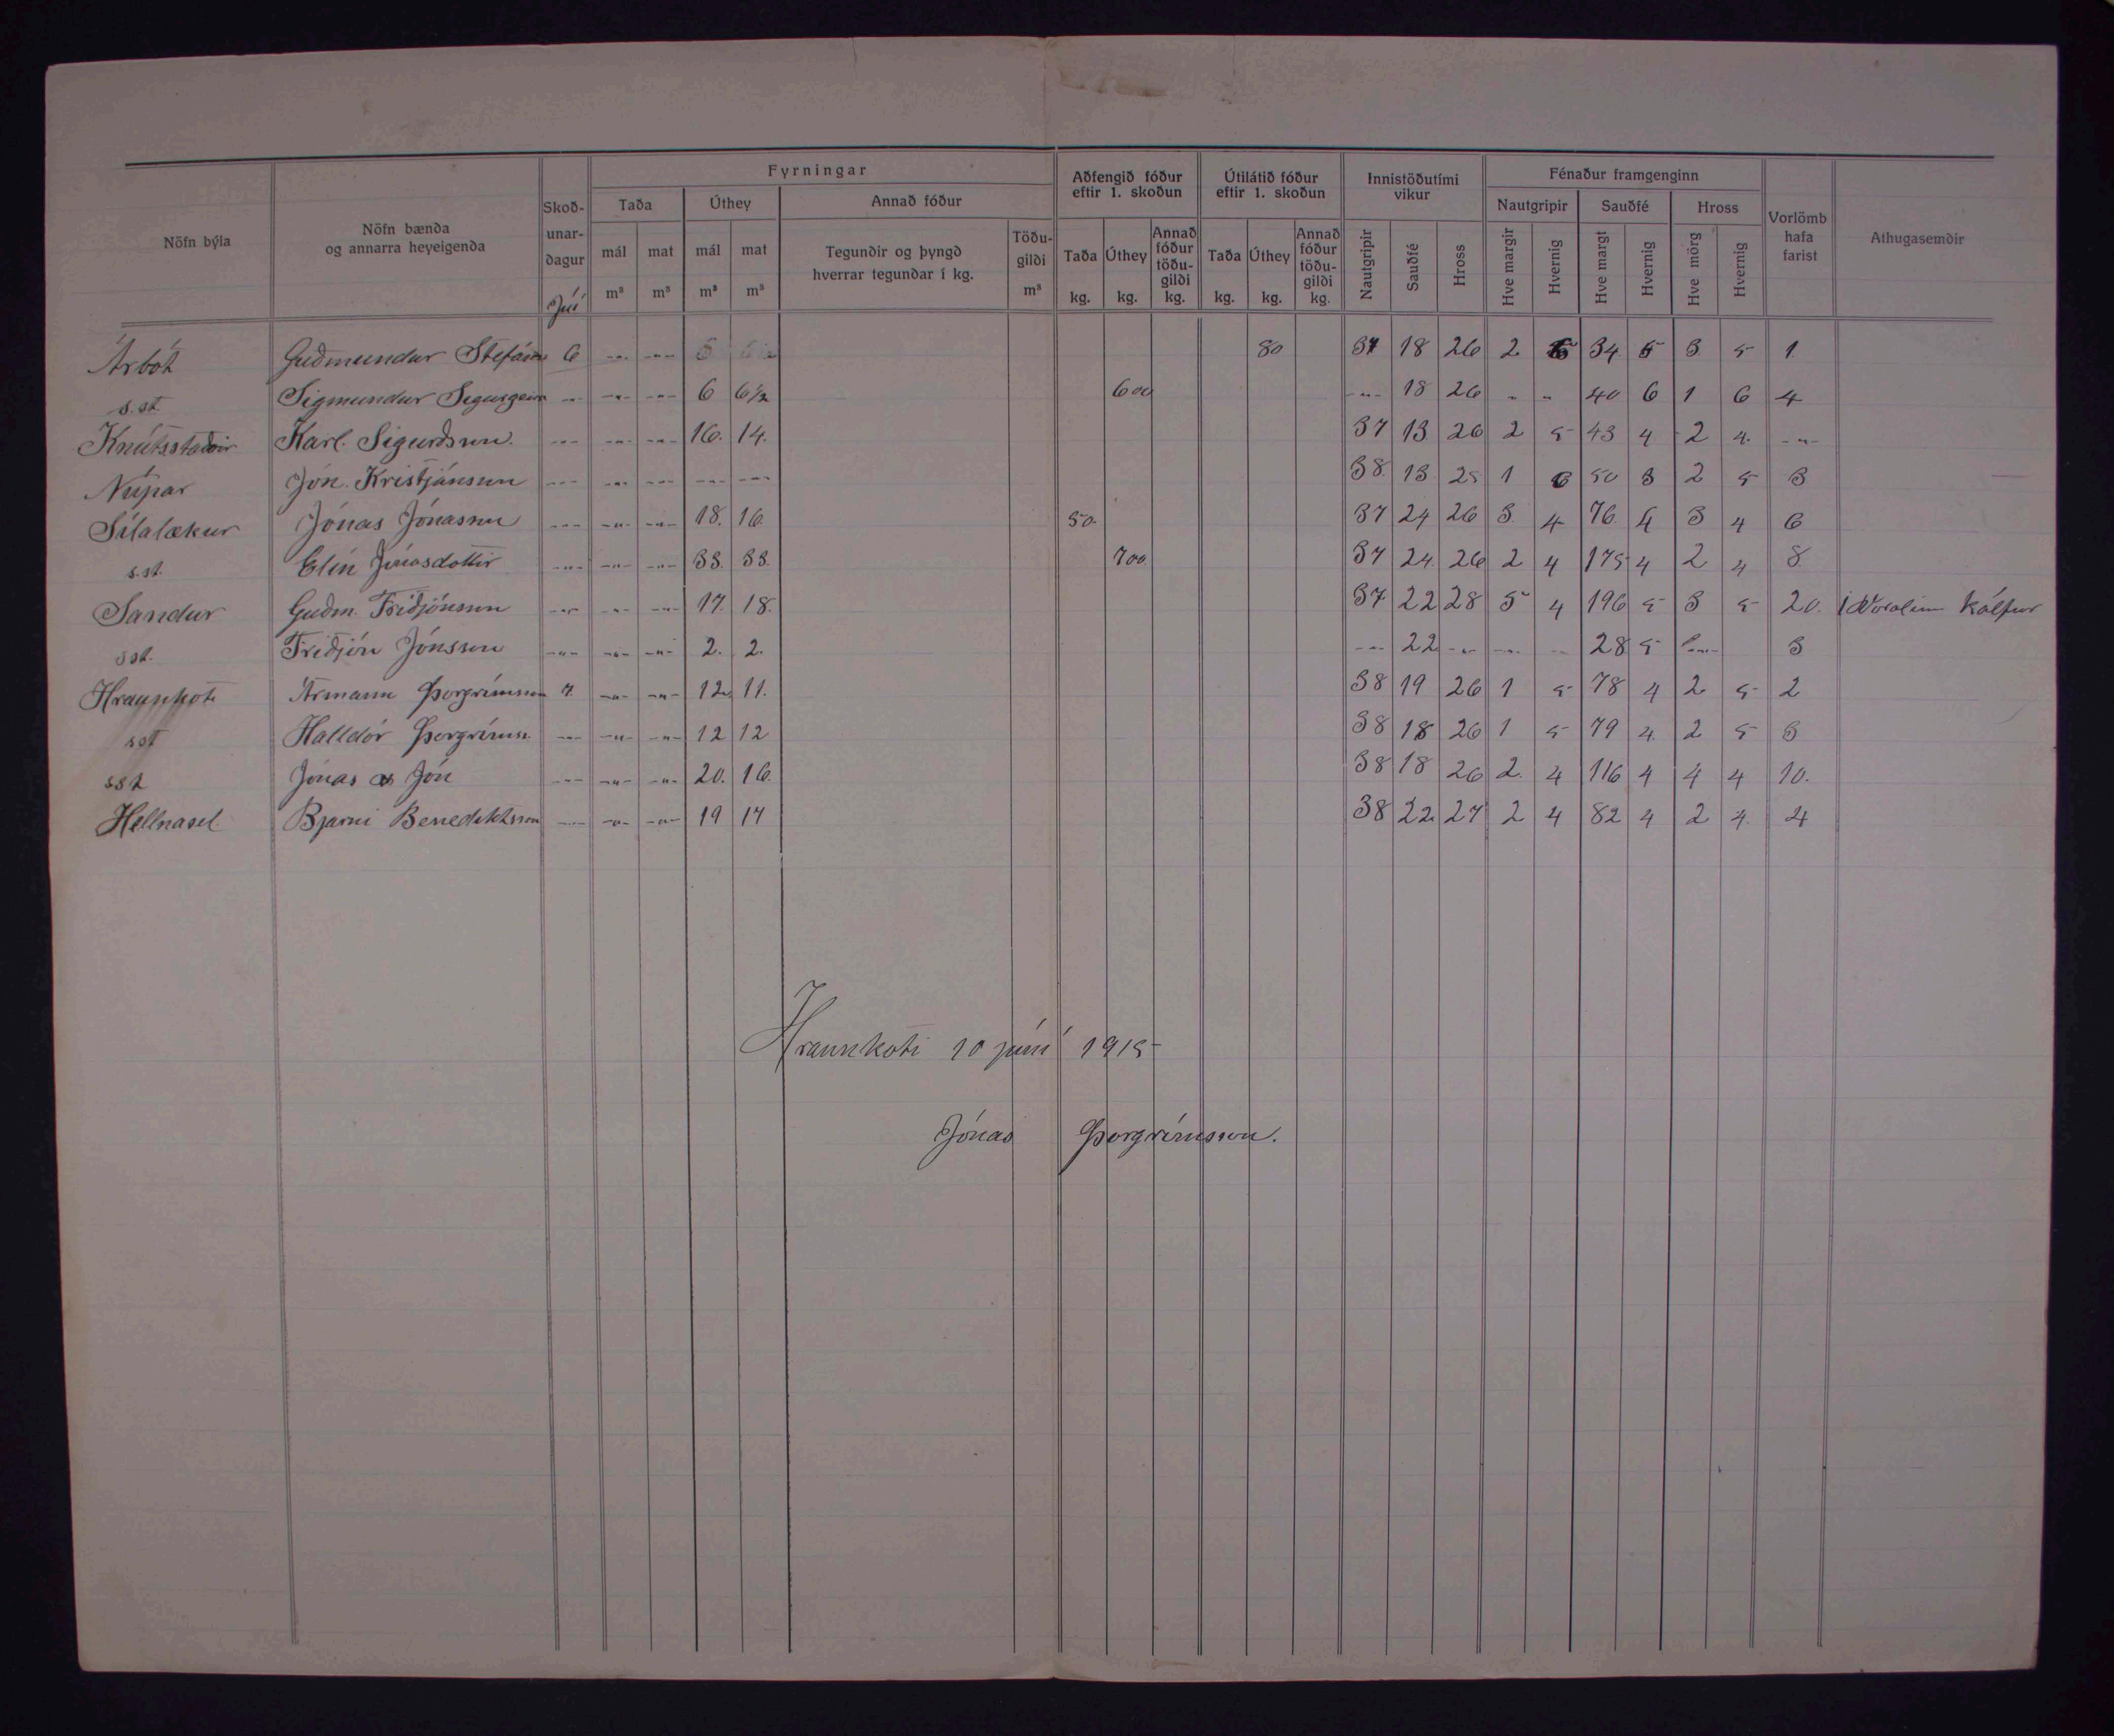 Fyrningar
Aðfengið fóður eftir 1. skoðun
Útilátið fóður eftir 1. skoðun
Innistöðutími vikur
Fénaður framgenginn
Nöfn býla
Nöfn bænda og annarra heyeigenda
Skoð-unar-dagur
Taða
Úthey
Annað fóður
Nautgripir
Sauðfé
Hross
Vorlömb hafa farist
Athugasemdir
mál m³
mat m³
mál m³
mat m³
Tegundir og þyngd hverrar tegundar í kg.
Töðu-gildi m³
Taða kg.
Úthey kg.
Annað fóður töðu-gildi kg.
Taða kg.
Úthey kg.
Annað fóður töðu-gildi kg.
Nautgripir
Sauðfé
Hross
Hve margir
Hvernig
Hve margt
Hvernig
Hve mörg
Hvernig
Árbót Guðmundur 6 -"- -"- 80 37 18 26 2 5 34 5 3 5 1
s.st. Sigmundur -"- -"- -"- 6 6½ 600 -"- 18 26 " " 40 6 1 6 4
Knútsstaðir Karl Sigurðsson -"- -"- -"- 16. 14. 37 13 26 2 5 43 4 2 4 -"-
Núpar Jón Kristjánsson -"- -"- -"- -"- -"- 38 13 25 1 6 50 3 2 5 3
Sílalækur Jónas Jónasson -"- -"- -"- 18. 16. 50 37 24 26 3 4 76 4 3 4 6
s.st. Elín Jónasdottir -"- -"- -"- 33. 33. 700 37 24 26 2 4 175 4 2 4 8
Sandur Guðm. Friðjónsson -"- -"- -"- 17. 18. 37 22 28 5 4 196 5 3 5 20 kálfur
s.st. Friðjón Jónsson -"- -"- -"- 2. 2. -"- 22 -"- -"- -"- 28 5 3
Hraunkoti Ármann Þorgrímsson 7 -"- -"- 12 11. 38 19 26 1 5 78 4 2 5 2
sst Halldór Þorgrímss. -"- -"- -"- 12 12 38 18 26 1 5 79 4 2 5 3
sst Jónas & Jón -"- -"- -"- 20. 16. 38 18 26 2 4 116 4 4 4 10.
Hellnasel Bjarni Benediktsson -"- -"- -"- 19 17 38 22 27 2 4 82 4 2 4 4
Hraunkoti 10 júní 1915
Jónas Þorgrímsson.